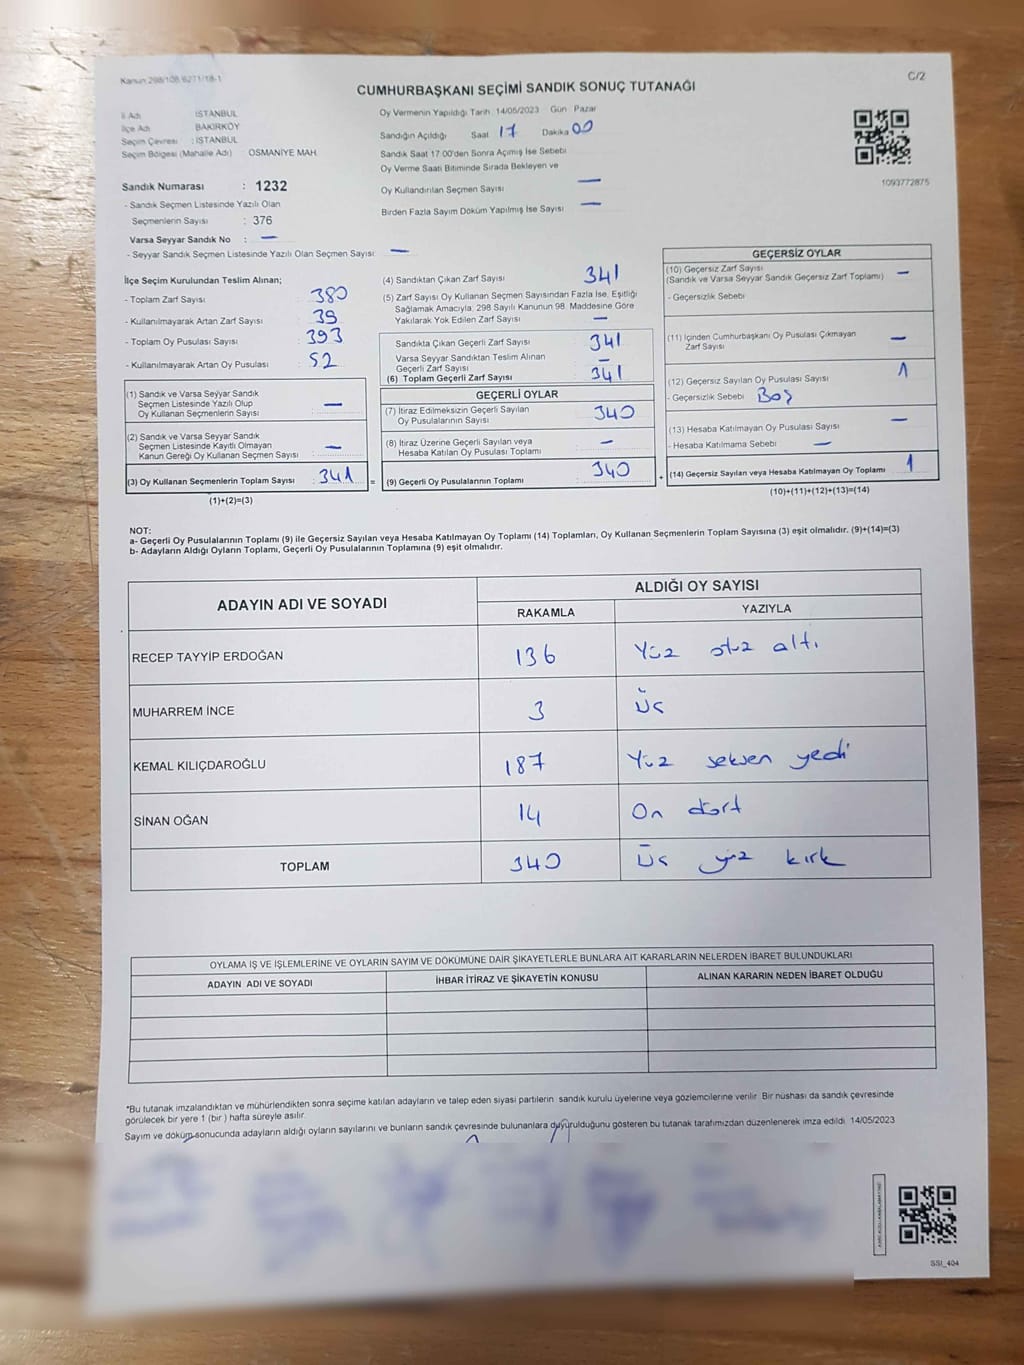 Kanun:298/108/6271/18-1
C/2
CUMHURBAŞKANI SEÇİMİ SANDIK SONUÇ TUTANAĞI
İl Adı : İSTANBUL
İlçe Adı : BAKIRKÖY
Seçim Çevresi : İSTANBUL
Seçim Bölgesi (Mahalle Adı) : OSMANİYE MAH.
Sandık Numarası : 1232
- Sandık Seçmen Listesinde Yazılı Olan
Seçmenlerin Sayısı : 376
Varsa Seyyar Sandık No : —
- Seyyar Sandık Seçmen Listesinde Yazılı Olan Seçmen Sayısı: —
Oy Vermenin Yapıldığı Tarih: 14/05/2023 Gün: Pazar
Sandığın Açıldığı Saat 17 Dakika 00
Sandık Saat 17:00'den Sonra Açımış İse Sebebi
Oy Verme Saati Bitiminde Sırada Bekleyen ve
Oy Kullandırılan Seçmen Sayısı —
Birden Fazla Sayım Döküm Yapılmış İse Sayısı —
1093772875
İlçe Seçim Kurulundan Teslim Alınan;
- Toplam Zarf Sayısı : 380
- Kullanılmayarak Artan Zarf Sayısı : 39
- Toplam Oy Pusulası Sayısı : 393
- Kullanılmayarak Artan Oy Pusulası : 52
(1) Sandık ve Varsa Seyyar Sandık
Seçmen Listesinde Yazılı Olup
Oy Kullanan Seçmenlerin Sayısı : —
(2) Sandık ve Varsa Seyyar Sandık
Seçmen Listesinde Kayıtlı Olmayan
Kanun Gereği Oy Kullanan Seçmen Sayısı : —
(3) Oy Kullanan Seçmenlerin Toplam Sayısı : 341 =
(1)+(2)=(3)
(4) Sandıktan Çıkan Zarf Sayısı 341
(5) Zarf Sayısı Oy Kullanan Seçmen Sayısından Fazla İse, Eşitliği
Sağlamak Amacıyla; 298 Sayılı Kanunun 98. Maddesine Göre
Yakılarak Yok Edilen Zarf Sayısı —
Sandıkta Çıkan Geçerli Zarf Sayısı 341
Varsa Seyyar Sandıktan Teslim Alınan
Geçerli Zarf Sayısı —
(6) Toplam Geçerli Zarf Sayısı 341
GEÇERLİ OYLAR
(7) İtiraz Edilmeksizin Geçerli Sayılan
Oy Pusulalarının Sayısı 340
(8) İtiraz Üzerine Geçerli Sayılan veya
Hesaba Katılan Oy Pusulası Toplamı —
(9) Geçerli Oy Pusulalarının Toplamı 340 +
GEÇERSİZ OYLAR
(10) Geçersiz Zarf Sayısı
(Sandık ve Varsa Seyyar Sandık Geçersiz Zarf Toplamı) —
- Geçersizlik Sebebi
(11) İçinden Cumhurbaşkanı Oy Pusulası Çıkmayan
Zarf Sayısı —
(12) Geçersiz Sayılan Oy Pusulası Sayısı 1
- Geçersizlik Sebebi Boş
(13) Hesaba Katılmayan Oy Pusulası Sayısı —
- Hesaba Katılmama Sebebi —
(14) Geçersiz Sayılan veya Hesaba Katılmayan Oy Toplamı 1
(10)+(11)+(12)+(13)=(14)
NOT:
a- Geçerli Oy Pusulalarının Toplamı (9) ile Geçersiz Sayılan veya Hesaba Katılmayan Oy Toplamı (14) Toplamları, Oy Kullanan Seçmenlerin Toplam Sayısına (3) eşit olmalıdır. (9)+(14)=(3)
b- Adayların Aldığı Oyların Toplamı, Geçerli Oy Pusulalarının Toplamına (9) eşit olmalıdır.
ADAYIN ADI VE SOYADI
ALDIĞI OY SAYISI
RAKAMLA YAZIYLA
RECEP TAYYİP ERDOĞAN 136 Yüz otuz altı
MUHARREM İNCE 3 Üç
KEMAL KILIÇDAROĞLU 187 Yüz seksen yedi
SİNAN OĞAN 14 On dört
TOPLAM 340 Üç yüz kırk
OYLAMA İŞ VE İŞLEMLERİNE VE OYLARIN SAYIM VE DÖKÜMÜNE DAİR ŞİKAYETLERLE BUNLARA AİT KARARLARIN NELERDEN İBARET BULUNDUKLARI
ADAYIN ADI VE SOYADI İHBAR İTİRAZ VE ŞİKAYETİN KONUSU ALINAN KARARIN NEDEN İBARET OLDUĞU
*Bu tutanak imzalandıktan ve mühürlendikten sonra seçime katılan adayların ve talep eden siyasi partilerin sandık kurulu üyelerine veya gözlemcilerine verilir. Bir nüshası da sandık çevresinde
görülecek bir yere 1 (bir ) hafta süreyle asılır.
Sayım ve döküm sonucunda adayların aldığı oyların sayılarını ve bunların sandık çevresinde bulunanlara duyurulduğunu gösteren bu tutanak tarafımızdan düzenlenerek imza edildi. 14/05/2023
SSI_404